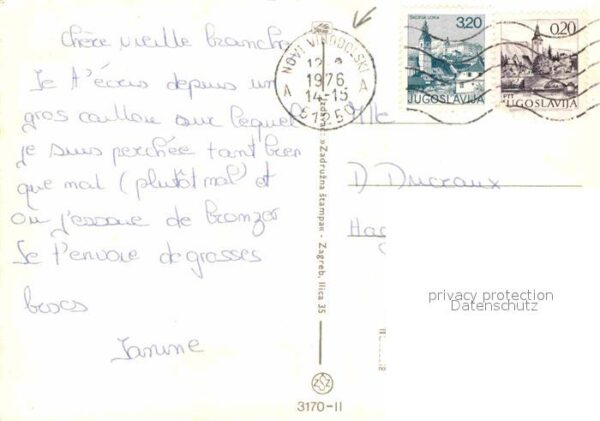 Chère vieille branche
Je t'écris depuis un
gros caillou sur lequel
je suis perchée tant bien
que mal (plutôt mal) et
où j'essaie de bronzer
Je t'envoie de grosses
bises
Janine
NOVI VINODOLSKI
1976
14-15
A A
51250
ŠKOFJA LOKA
3.20
JUGOSLAVIJA
0.20
PTT
JUGOSLAVIJA
Mlle
D Ducraux
»Zadružna štampa« - Zagreb, Ilica 35
3170-II
privacy protection
Datenschutz